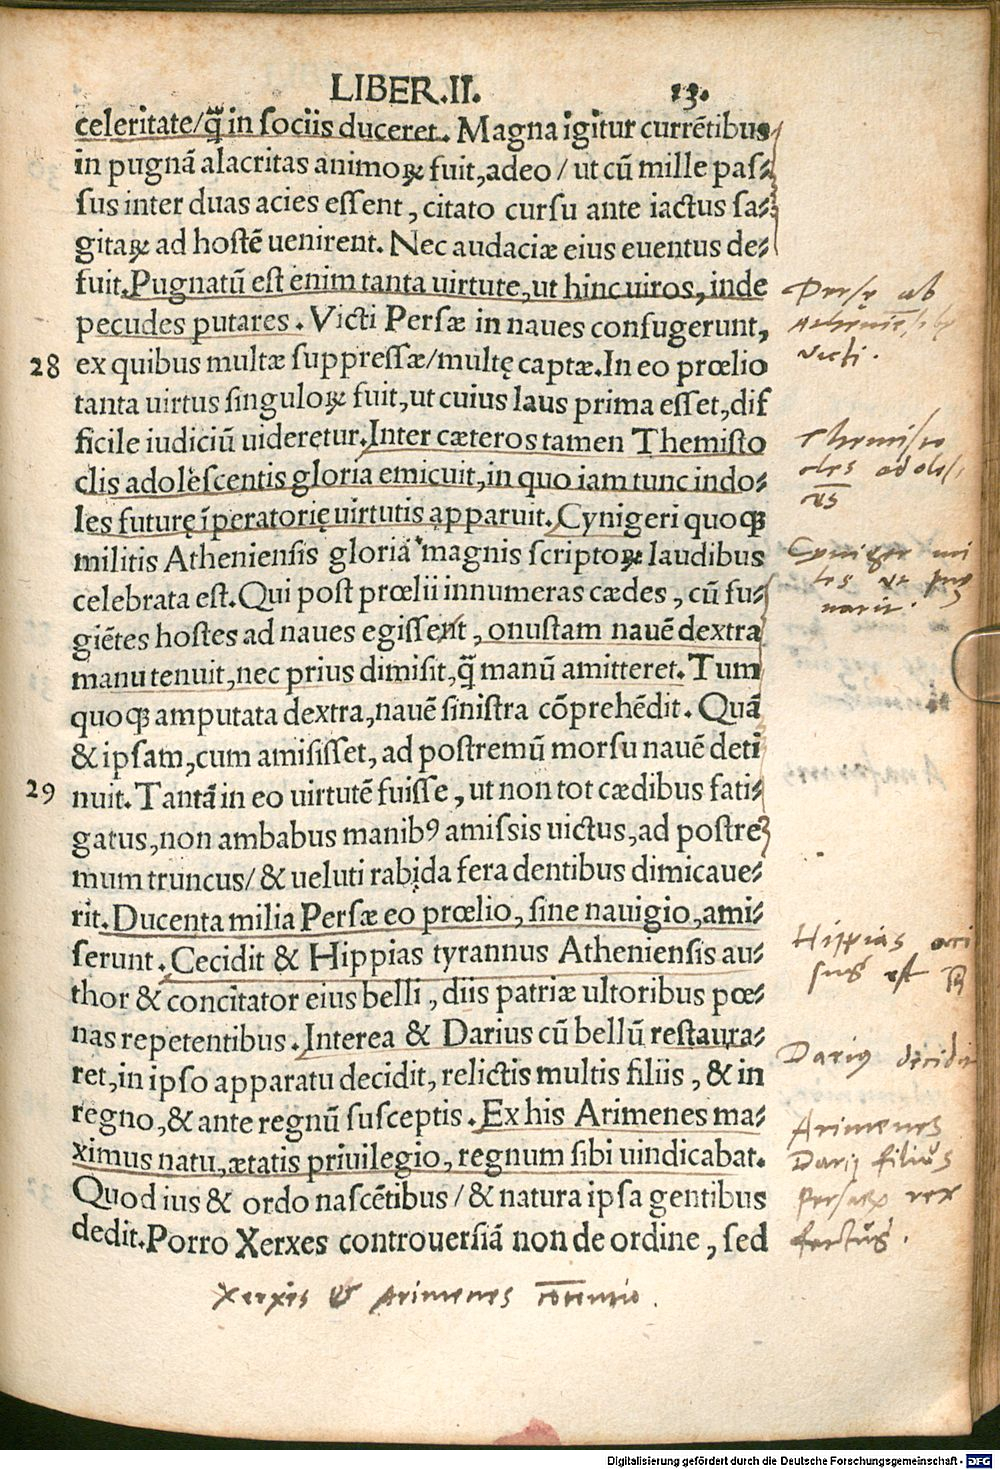 LIBER.II. 13.
celeritate/q̃ in sociis duceret. Magna igitur currētibus
in pugnã alacritas animoꝝ fuit,adeo / ut cũ mille pas⸗
sus inter duas acies essent, citato cursu ante iactus sa⸗
gitaꝝ ad hostē uenirent. Nec audaciæ eius euentus de⸗
fuit.Pugnatũ est enim tanta uirtute,ut hinc uiros, inde
pecudes putares. Victi Persæ in naues confugerunt,
28 ex quibus multæ suppressæ/multę captæ.In eo prœlio
tanta uirtus singuloꝝ fuit,ut cuius laus prima esset,dif
ficile iudiciũ uideretur.Inter cæteros tamen Themisto
clis adolescentis gloria emicuit,in quo iam tunc indo⸗
les futurę īperatorię uirtutis apparuit.Cynigeri quoqꝫ
militis Atheniensis gloria magnis scriptoꝝ laudibus
celebrata est.Qui post prœlii innumeras cædes, cũ fu⸗
giētes hostes ad naues egissent, onustam nauē dextra
manu tenuit,nec prius dimisit,q̃ manũ amitteret. Tum
quoqꝫ amputata dextra,nauē sinistra cōprehēdit. Quã
& ipsam,cum amisisset, ad postremũ morsu nauē deti
29 nuit. Tantã in eo uirtutē fuisse, ut non tot cædibus fati⸗
gatus,non ambabus manibꝰ amissis uictus,ad postre
mum truncus/ & ueluti rabida fera dentibus dimicaue⸗
rit. Ducenta milia Persæ eo prœlio, sine nauigio,ami⸗
serunt. Cecidit & Hippias tyrannus Atheniensis au⸗
thor & concitator eius belli, diis patriæ ultoribus pœ⸗
nas repetentibus. Interea & Darius cũ bellũ restaura⸗
ret,in ipso apparatu decidit, relictis multis filiis, & in
regno,& ante regnũ susceptis. Ex his Arimenes ma⸗
ximus natu,ætatis priuilegio, regnum sibi uindicabat.
Quod ius & ordo nascētibus / & natura ipsa gentibus
dedit. Porro Xerxes controuersiã non de ordine, sed
Persę ab
Atheniēsibꝫ
victi.
Themisto
cles adoles⸗
Cyniger mi
les ut pug
narit.
Hippias occi
sus est
Darius decidit
Arimenes
Darij filius
Persaꝝ rex
Xerxes & Arimenes cōtentio.
Digitalisierung gefördert durch die Deutsche Forschungsgemeinschaft - DFG